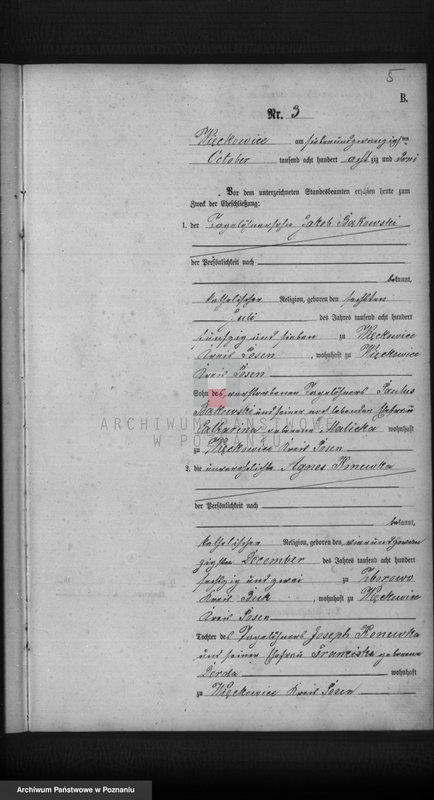 5
B.
Nr. 3
Więckowice am siebenundzwanzigsten
October tausend acht hundert achtzig und drei
Vor dem unterzeichneten Standesbeamten erschienen heute zum
Zweck der Eheschließung:
1. der Tagelöhnersohn Jakob Bąkowski
der Persönlichkeit nach
bekannt,
katholischer Religion, geboren den sechsten
Juli des Jahres tausend acht hundert
fünfzig und sieben zu Więckowice
Kreis Posen, wohnhaft zu Więckowice
Kreis Posen
Sohn des verstorbenen Tagelöhners Paulus
Bąkowski und seiner noch lebenden Ehefrau
Catharina geborene Malicka wohnhaft
zu Więckowice Kreis Posen
2. die unverehelichte Agnes Konewka
der Persönlichkeit nach
bekannt,
katholischer Religion, geboren den vierundzwan
zigsten December des Jahres tausend acht hundert
sechszig und zwei zu Zborowo
Kreis Buk, wohnhaft zu Więckowice
Kreis Posen
Tochter des Tagelöhners Joseph Konewka
und seiner Ehefrau Franciska geborene
Doroba wohnhaft
zu Więckowice Kreis Posen
ARCHIWUM PAŃSTWOWE
W POZNANIU
Archiwum Państwowe w Poznaniu